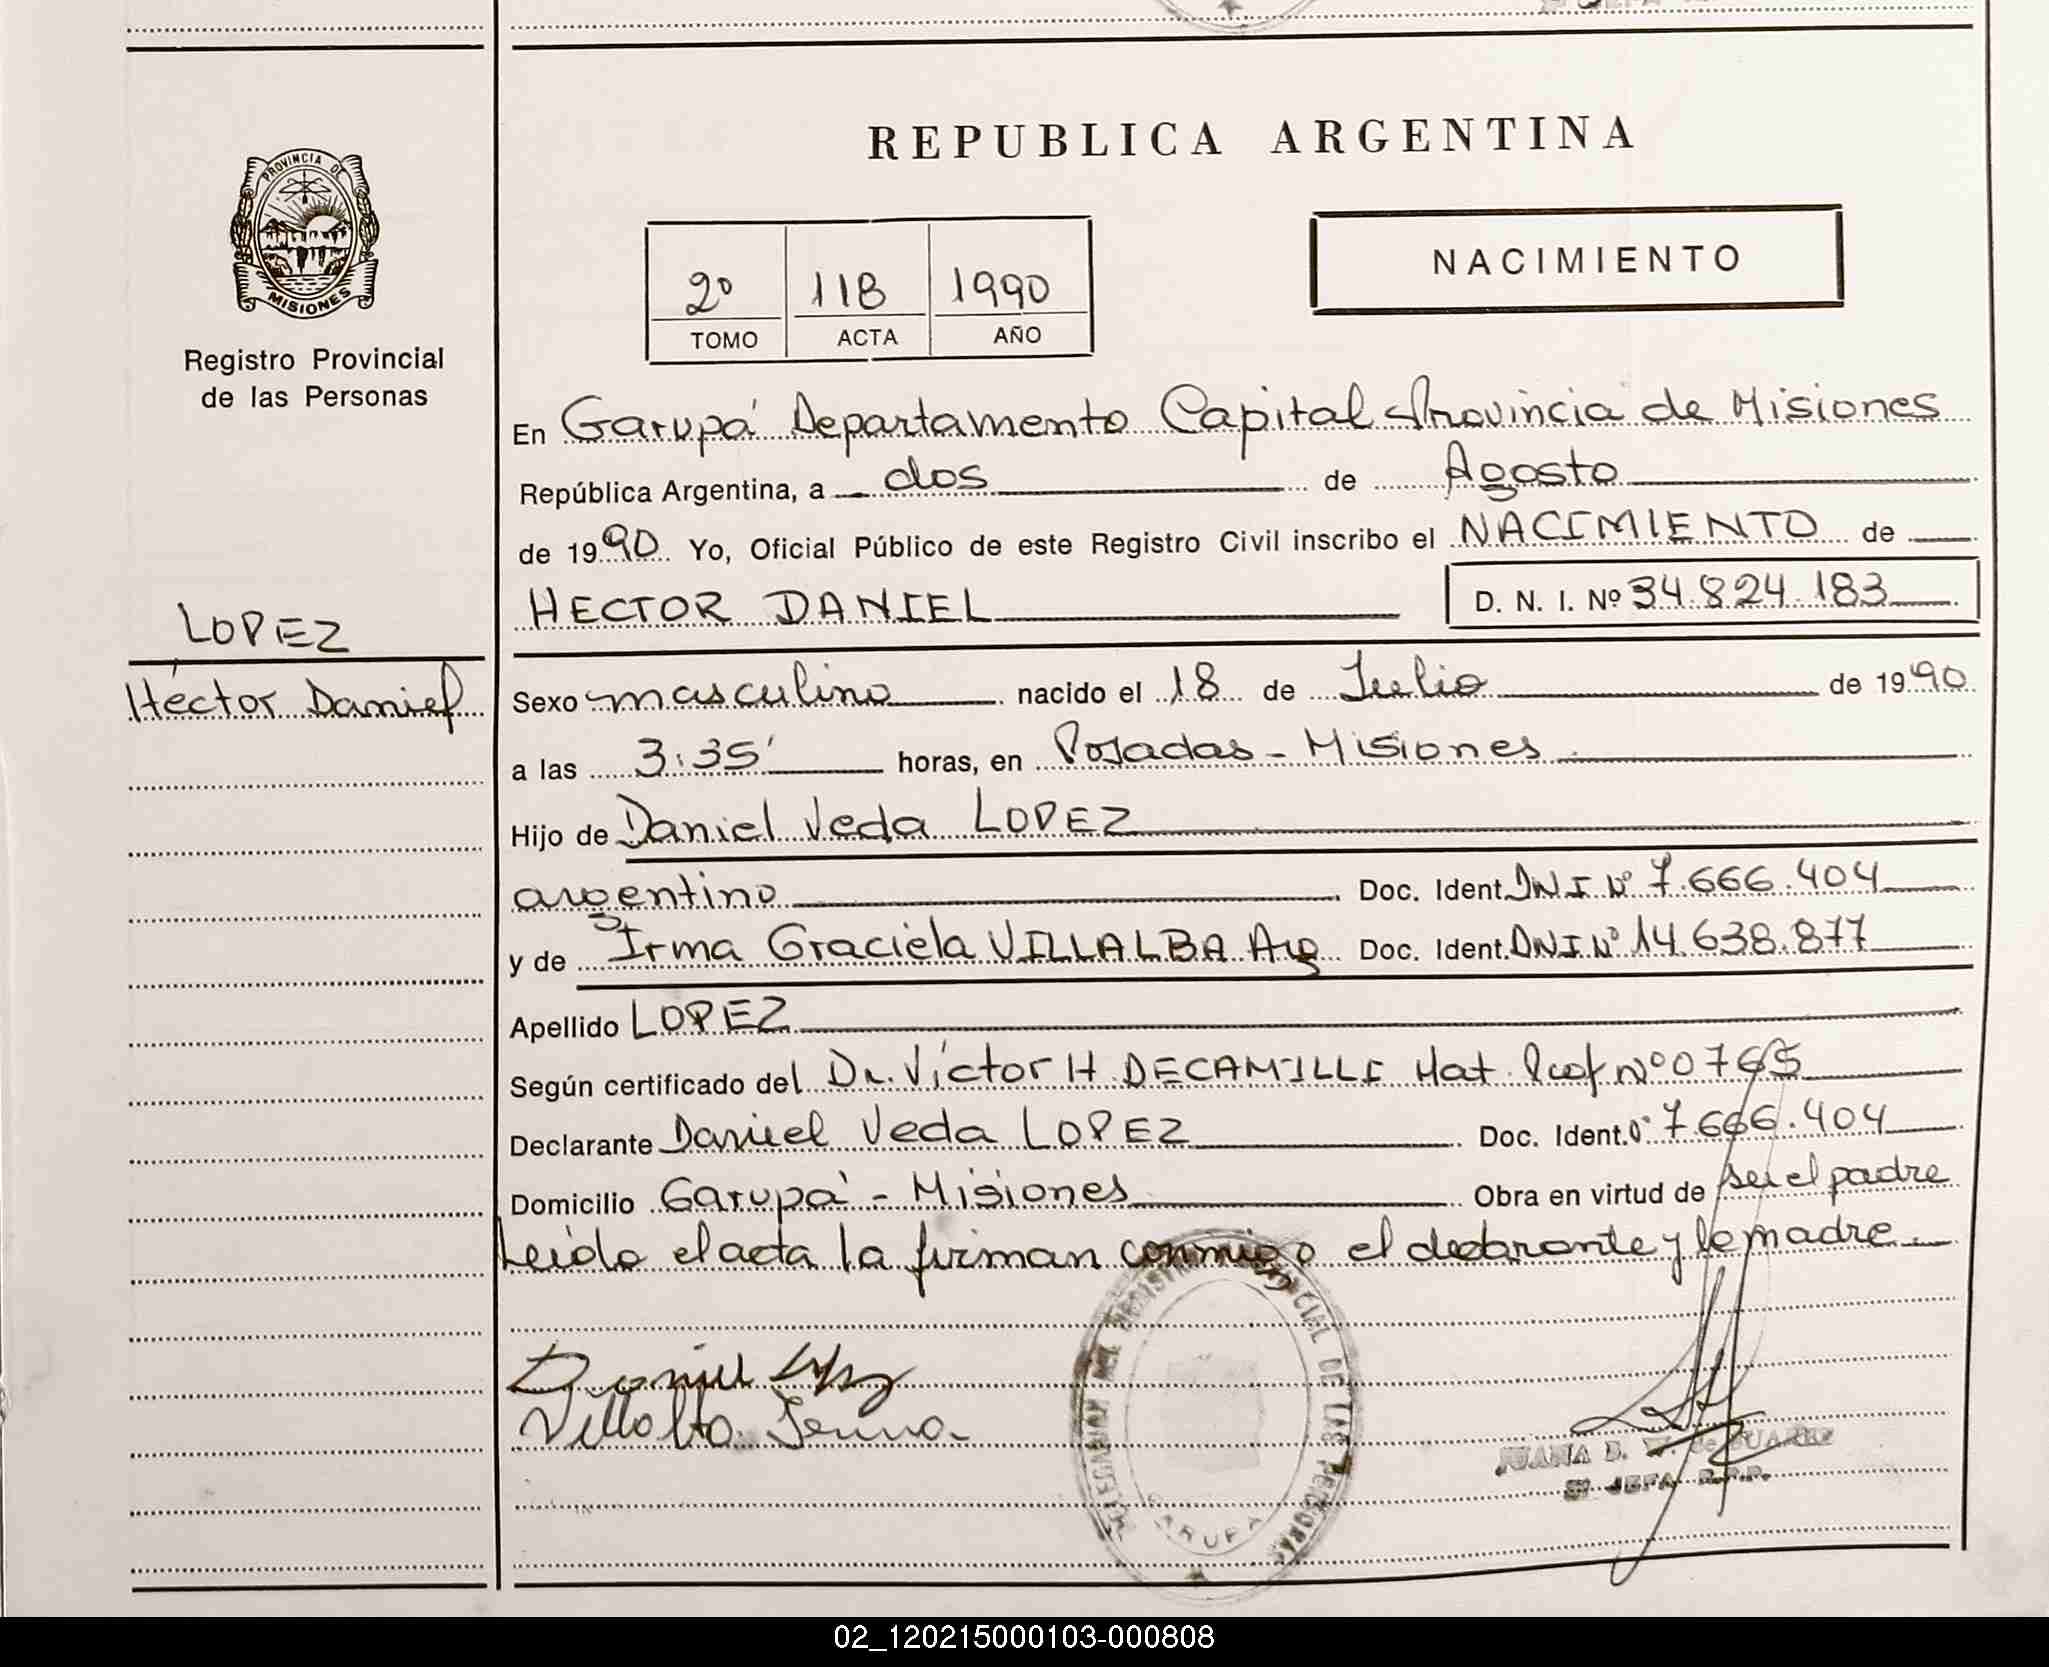 REPUBLICA ARGENTINA
PROVINCIA DE
MISIONES
Registro Provincial
de las Personas
2º 118 1990
TOMO ACTA AÑO
NACIMIENTO
En Garupá Departamento Capital Provincia de Misiones
República Argentina, a dos de Agosto
de 1990 Yo, Oficial Público de este Registro Civil inscribo el NACIMIENTO de
HECTOR DANIEL D. N. I. Nº 34.824.183
LOPEZ
Héctor Daniel
Sexo masculino nacido el 18 de Julio de 1990
a las 3:35' horas, en Posadas - Misiones
Hijo de Daniel Veda LOPEZ
argentino Doc. Ident. DNI Nº 7.666.404
y de Irma Graciela VILLALBA Arg Doc. Ident. DNI Nº 14.638.877
Apellido LOPEZ
Según certificado del Dr. Víctor H DECAMILLI Mat. Prof Nº 0765
Declarante Daniel Veda LOPEZ Doc. Ident. 7.666.404
Domicilio Garupá - Misiones Obra en virtud de ser el padre
Leída el acta la firman conmigo el declarante y la madre
REGISTRO PROVINCIAL DE LAS PERSONAS
GARUPA
JUANA B. de SUAREZ
JEFA R.P.P.
02_120215000103-000808